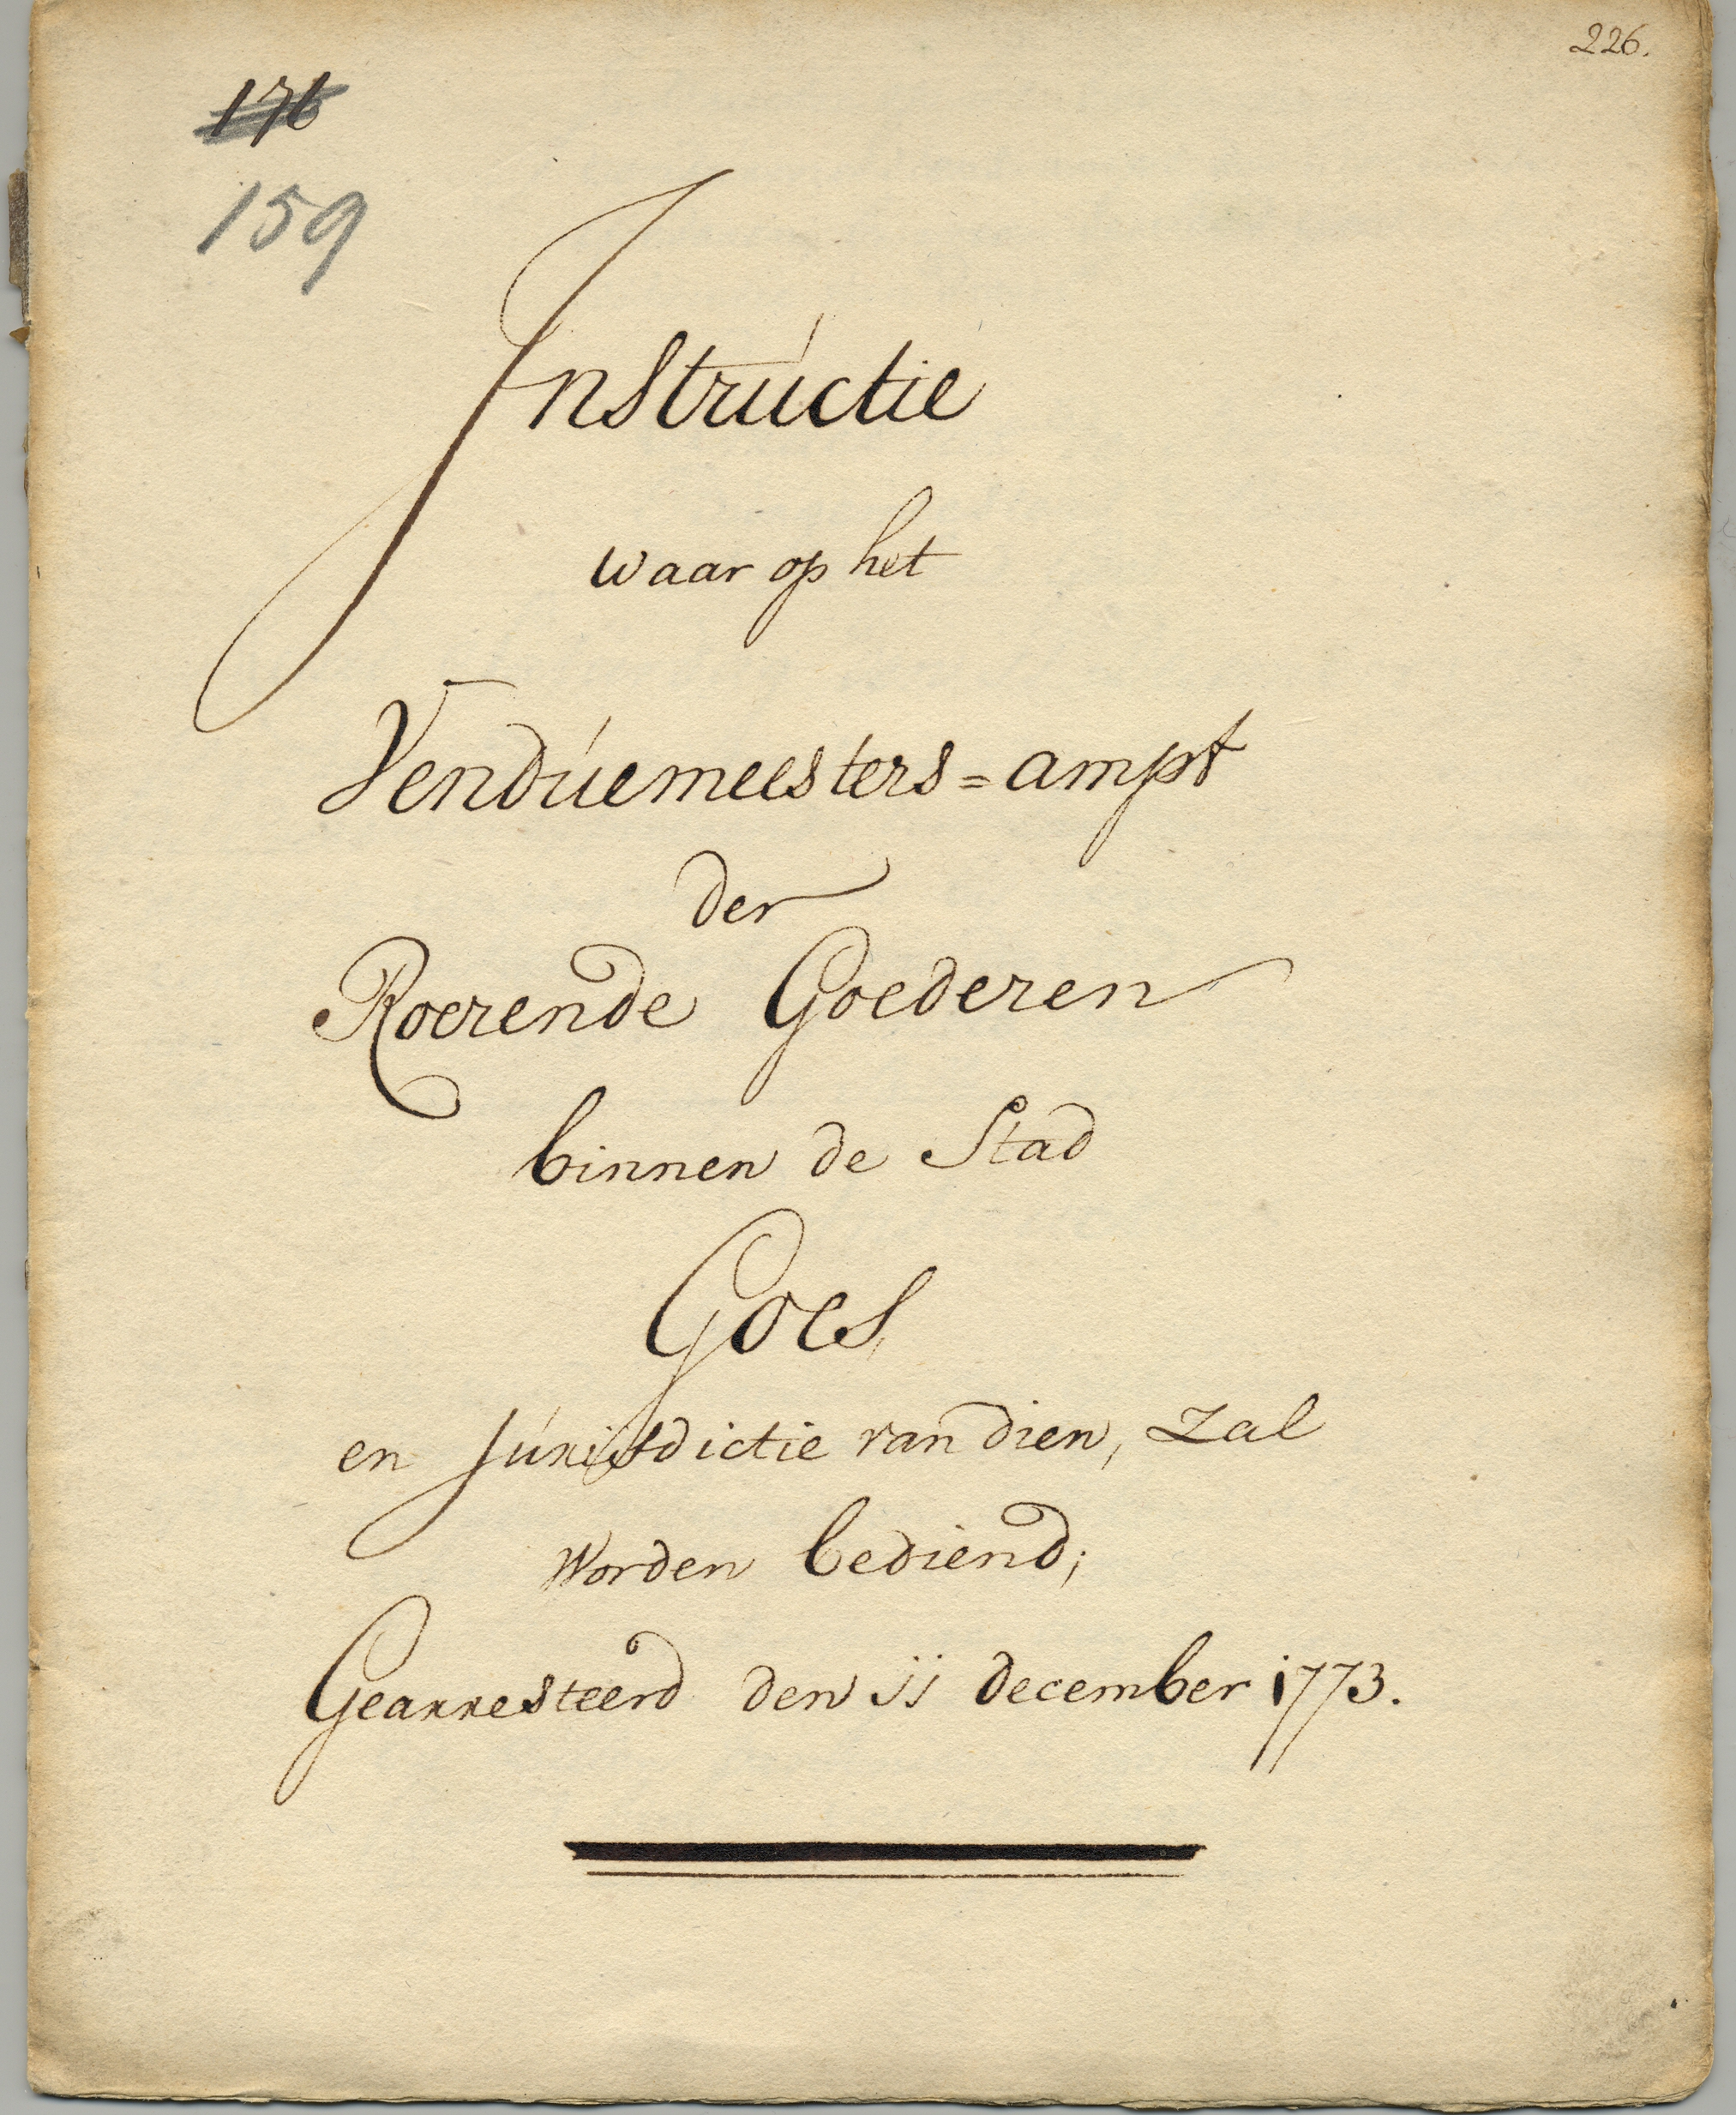 226.
176
159
Instructie
waar op het
Venduemeesters=ampt
der
Roerende Goederen
binnen de Stad
Goes
en Jurisdictie van dien, zal
Worden bediend;
Gearresteerd den 11 december 1773.